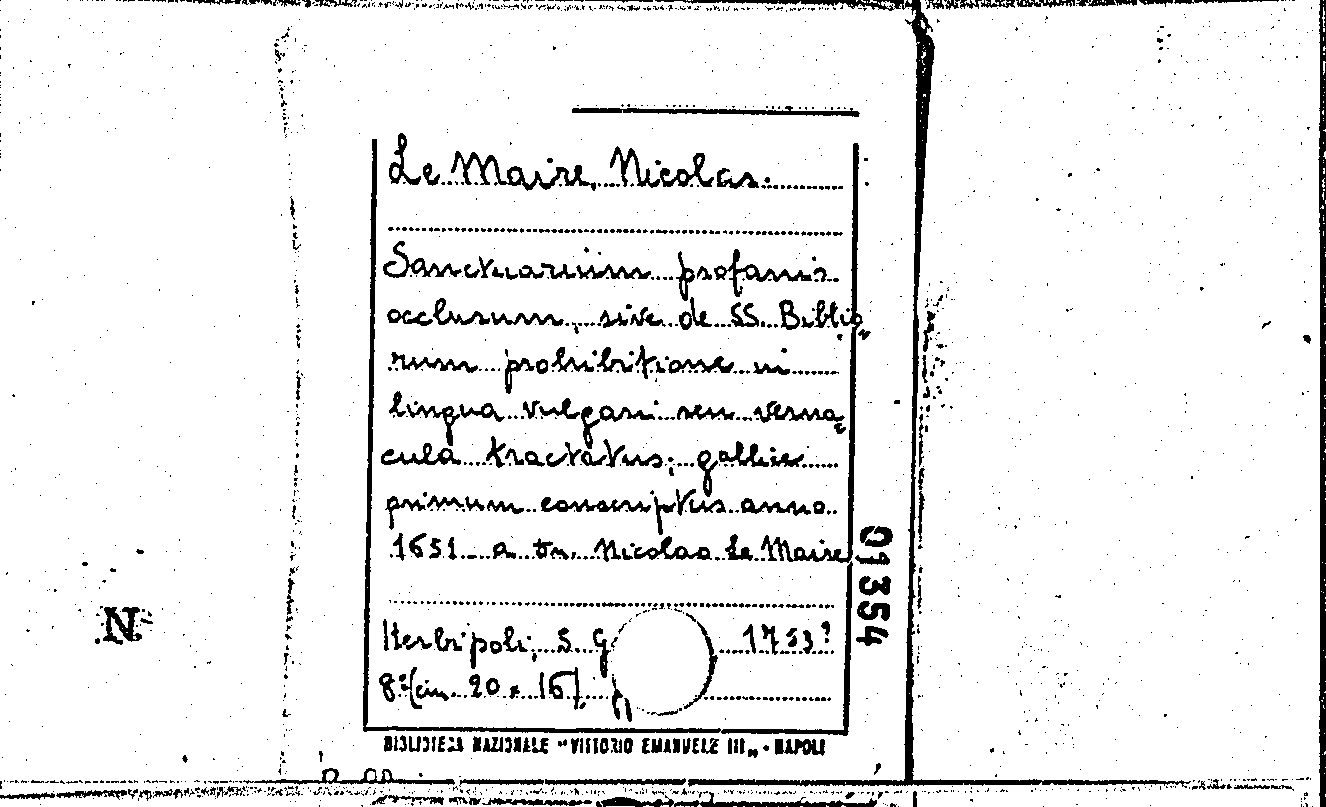 Le Maire, Nicolas.
Sanctuarium profanis
occlusum, sive de SS. Biblio=
rum prohibitione in
lingua vulgari seu verna=
cula tractatus; gallice
primum conscriptus anno
1651 a Nicolao Le Maire
Herbipoli; S. G 1753?
8º (cm. 20 x 16)
BIBLIOTECA NAZIONALE "VITTORIO EMANUELE III" - NAPOLI
01354
N